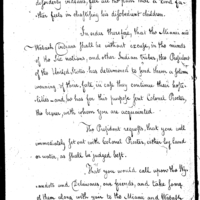 disorderly Indians, felt no pain that a kind fa-
ther feels in chastising his disobedient children.
In order therefore, that the Miami and
Wabash Indians shall be without excuse, in the minds
of the six nations, and other Indian tribes, the President
of the United States has determined to send them a solemn
warning of their fate, in case they continue their hos-
tilities and, for this purpose sent Colonel Procter,
the bearer, with whom you are acquainted.
The President requests, that you will
immediately set out with Colonel Procter, either by land
or water, as shall be judged best.
That you would call upon the Wy-
andots and Delawares our friends, and take some of
them along with you to the Miami and Wabash